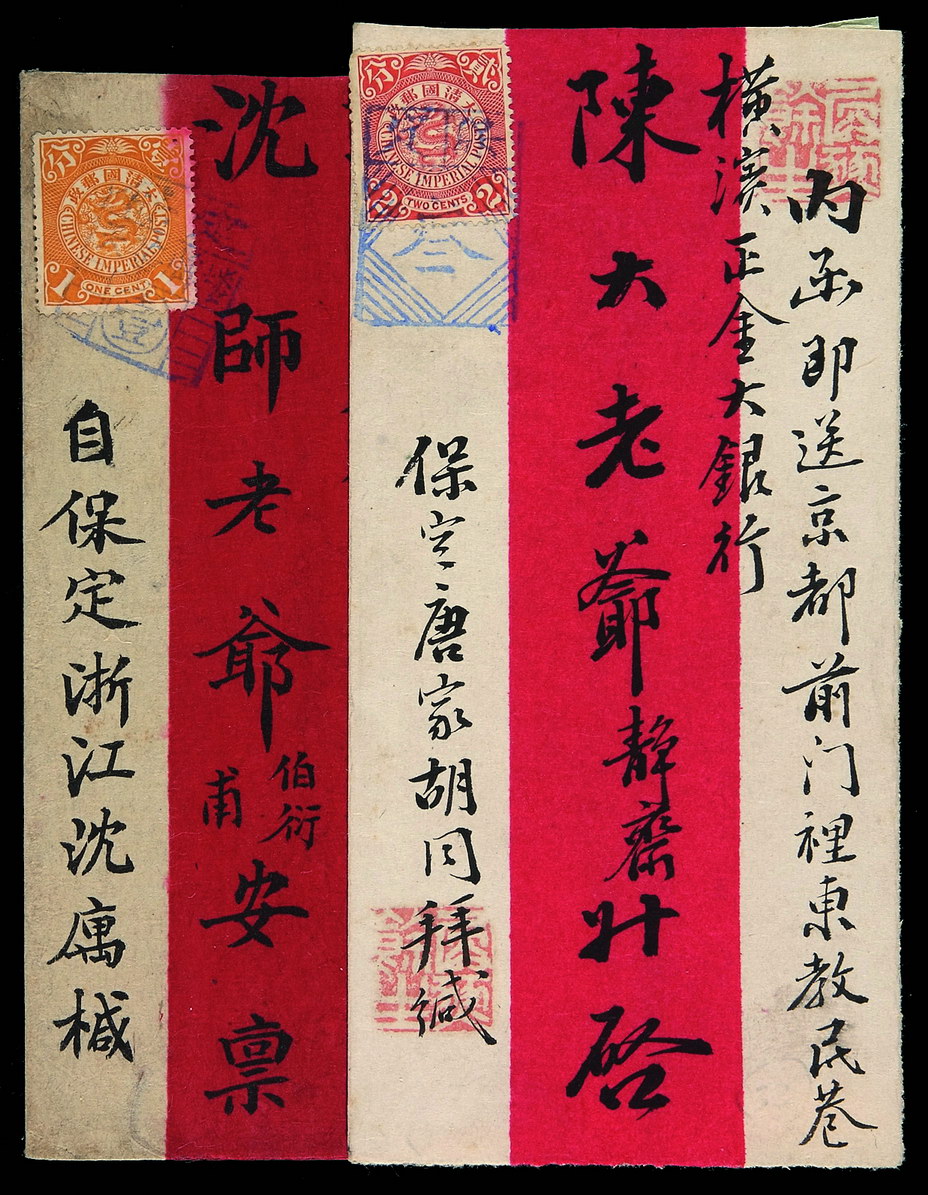 内函即送京都前门裡東教民巷
横濵正金大銀行
陳大老爺静齋升啓
保定唐家胡同拜緘
貳分
大清國郵政
CHINESE IMPERIAL POST
2 TWO CENTS 2
沈師老爺伯衍甫安稟
自保定浙江沈寓椷
分
大清國郵政
CHINESE IMPERIAL POST
1 ONE CENT 1